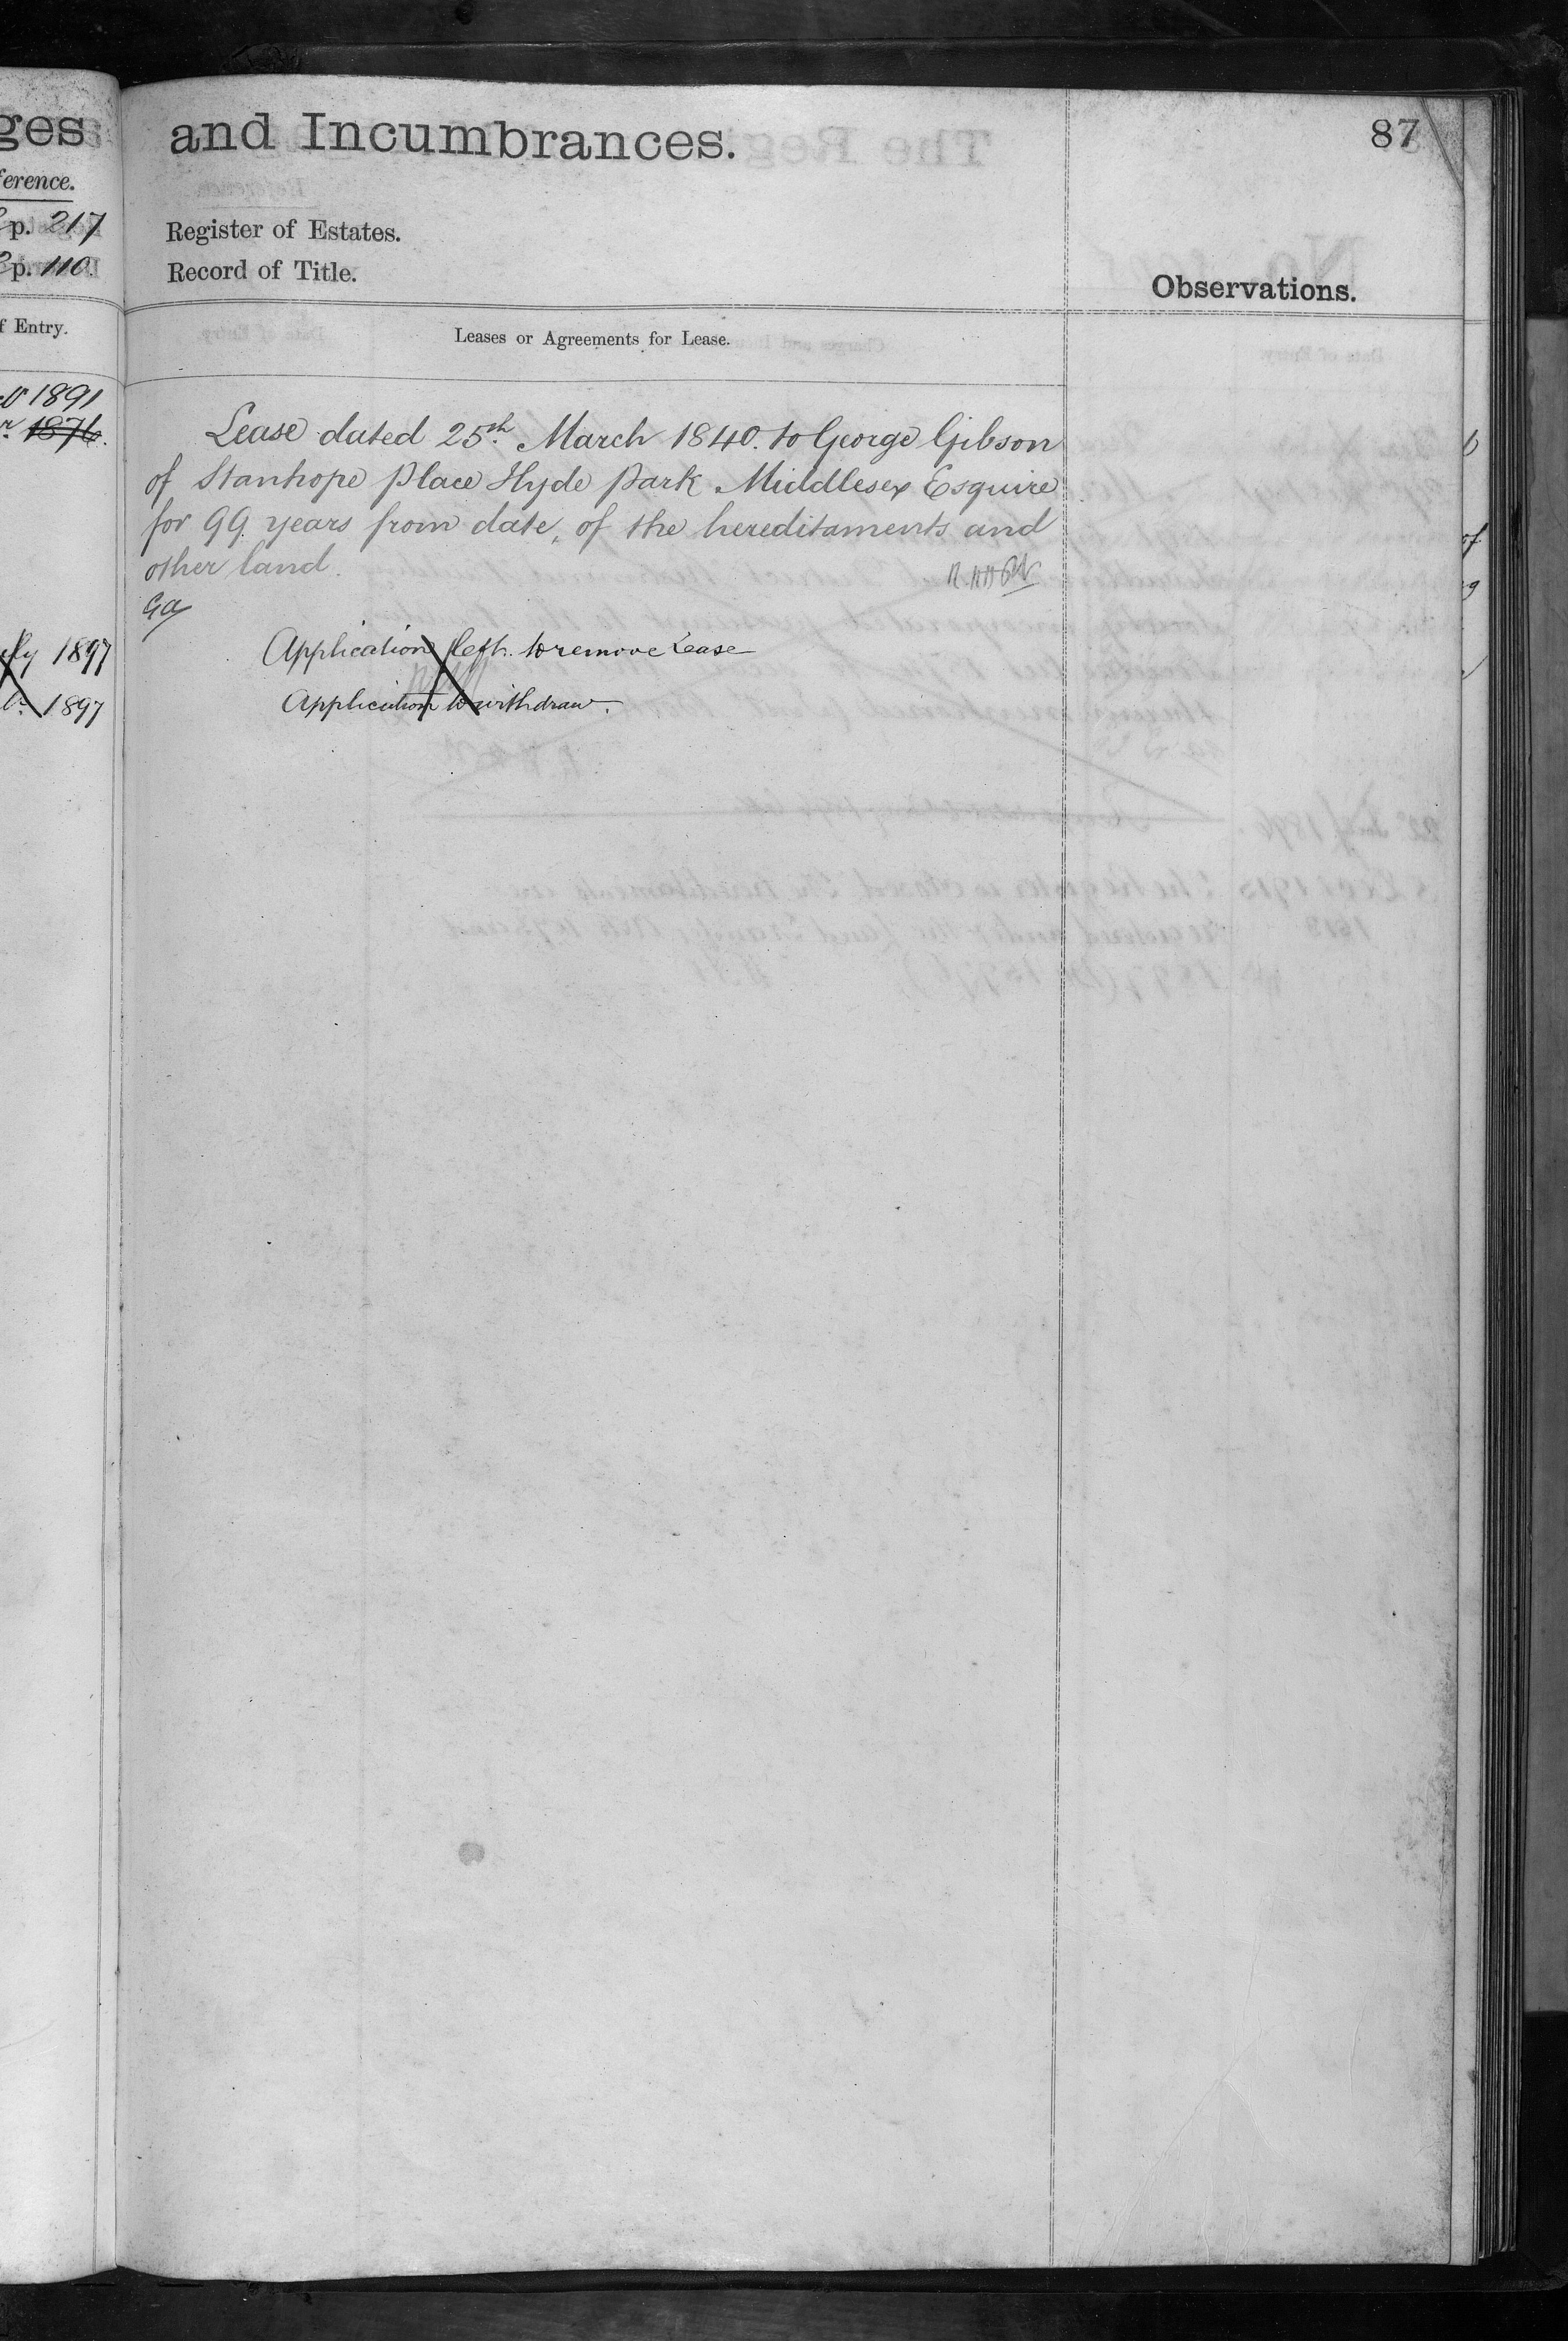 ges
ference.
p. 217
p. 110
f Entry.
1891
1876.
1897
1897
and Incumbrances.
87
Register of Estates.
Record of Title.
Observations.
Leases or Agreements for Lease.
Lease dated 25th March 1840. to George Gibson
of Stanhope Place Hyde Park Middlesex Esquire
for 99 years from date, of the hereditaments and
other land.
Ga
Application left. to remove Lease
Application to withdraw.
of